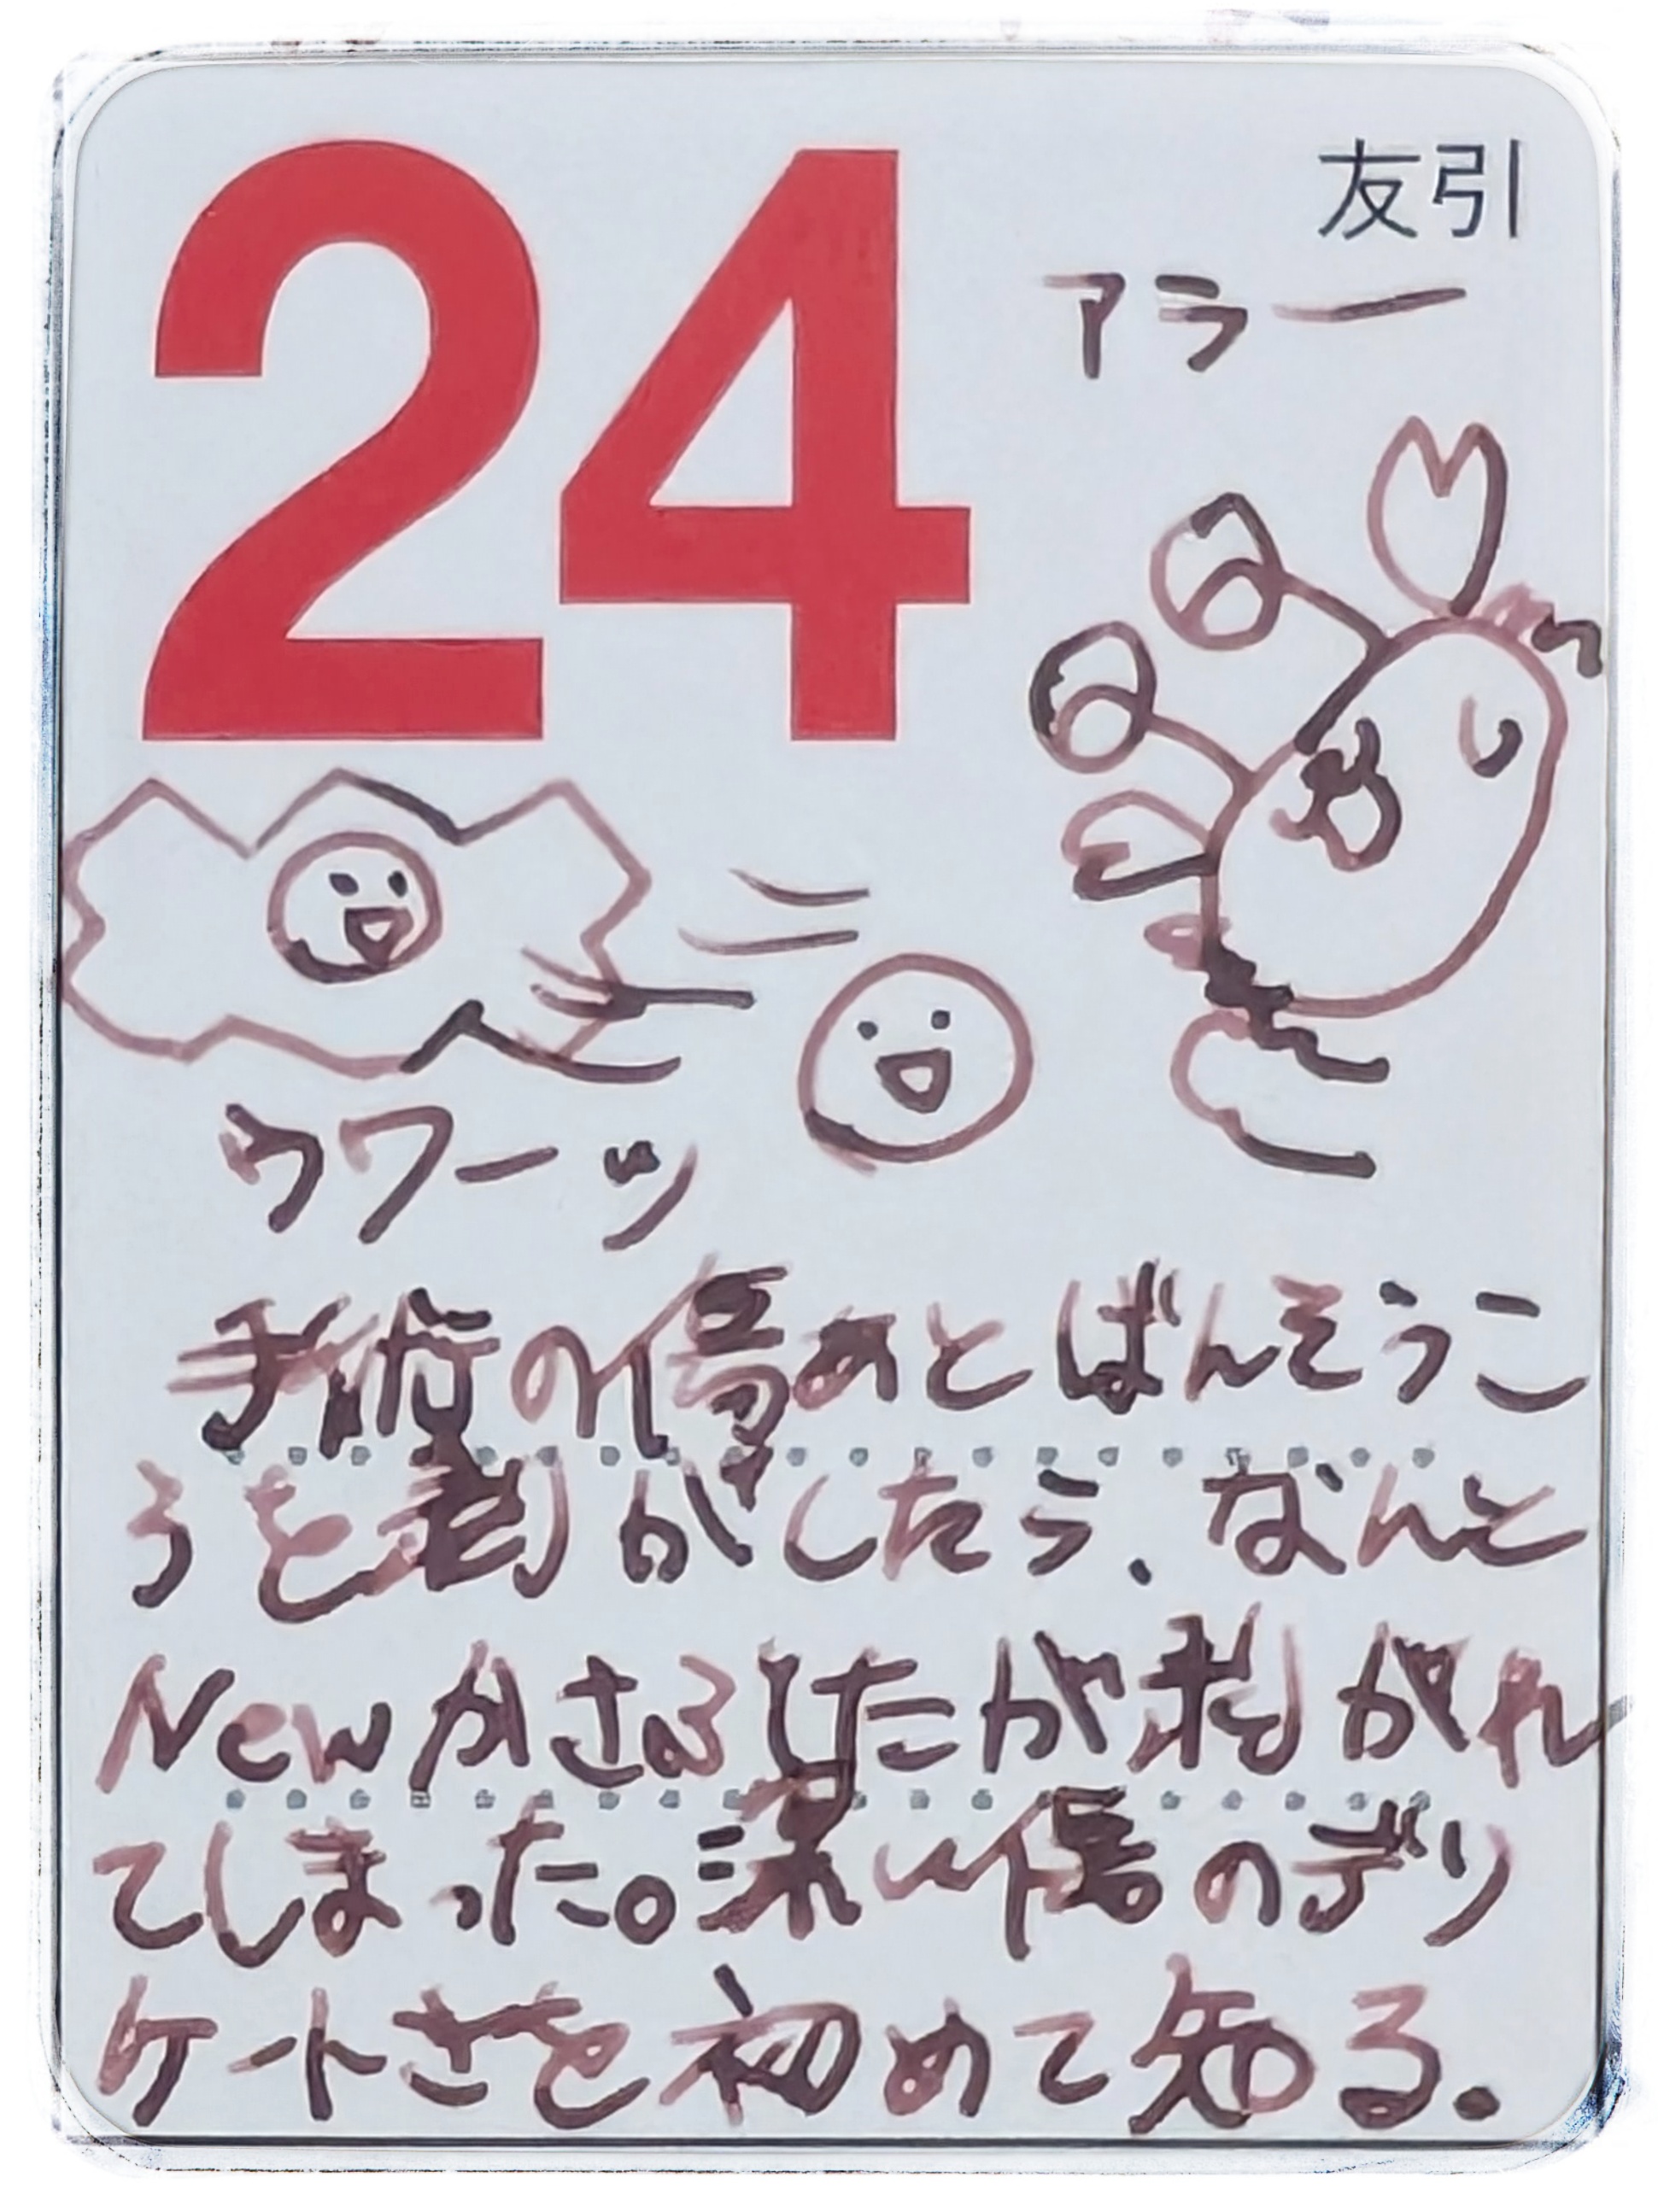 24
友引
アラー
ウワーッ
手術の傷あとばんそうこ
うを剥がしたら、なんと
Newかさぶたが剥がれ
てしまった。深い傷のデリ
ケートさを初めて知る。